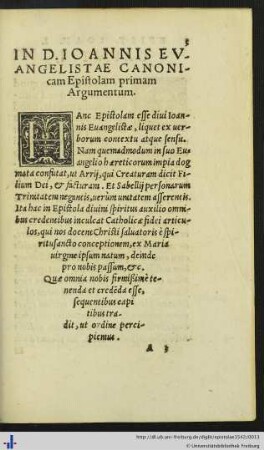 3
IN D. IOANNIS EV
ANGELISTAE CANONI
cam Epistolam primam
Argumentum.
HAnc Epistolam esse diui Ioan
nis Euangelistæ, liquet ex uer
borum contextu atque sensu.
Nam quemadmodum in suo Eu
angelio hæreticorum impia dog
mata confutat, ut Arrij, qui Creaturam dicit Fi
lium Dei, & facturam. Et Sabellij personarum
Trinitatem negantis, uerùm unitatem asserentis.
Ita hac in Epistola diuini spiritus auxilio omni
bus credentibus inculcat Catholicæ fidei articu
los, qui nos docent Christi saluatoris è spi
ritu sancto conceptionem, ex Maria
uirgine ipsum natum, deinde
pro nobis passum, &c.
Quæ omnia nobis firmißimè te
nenda et credẽda esse,
sequentibus capi
tibus tra
dit, ut ordine perci
piemus.
A 3
http://dl.ub.uni-freiburg.de/diglit/epistolae1543/0013
© Universitätsbibliothek Freiburg